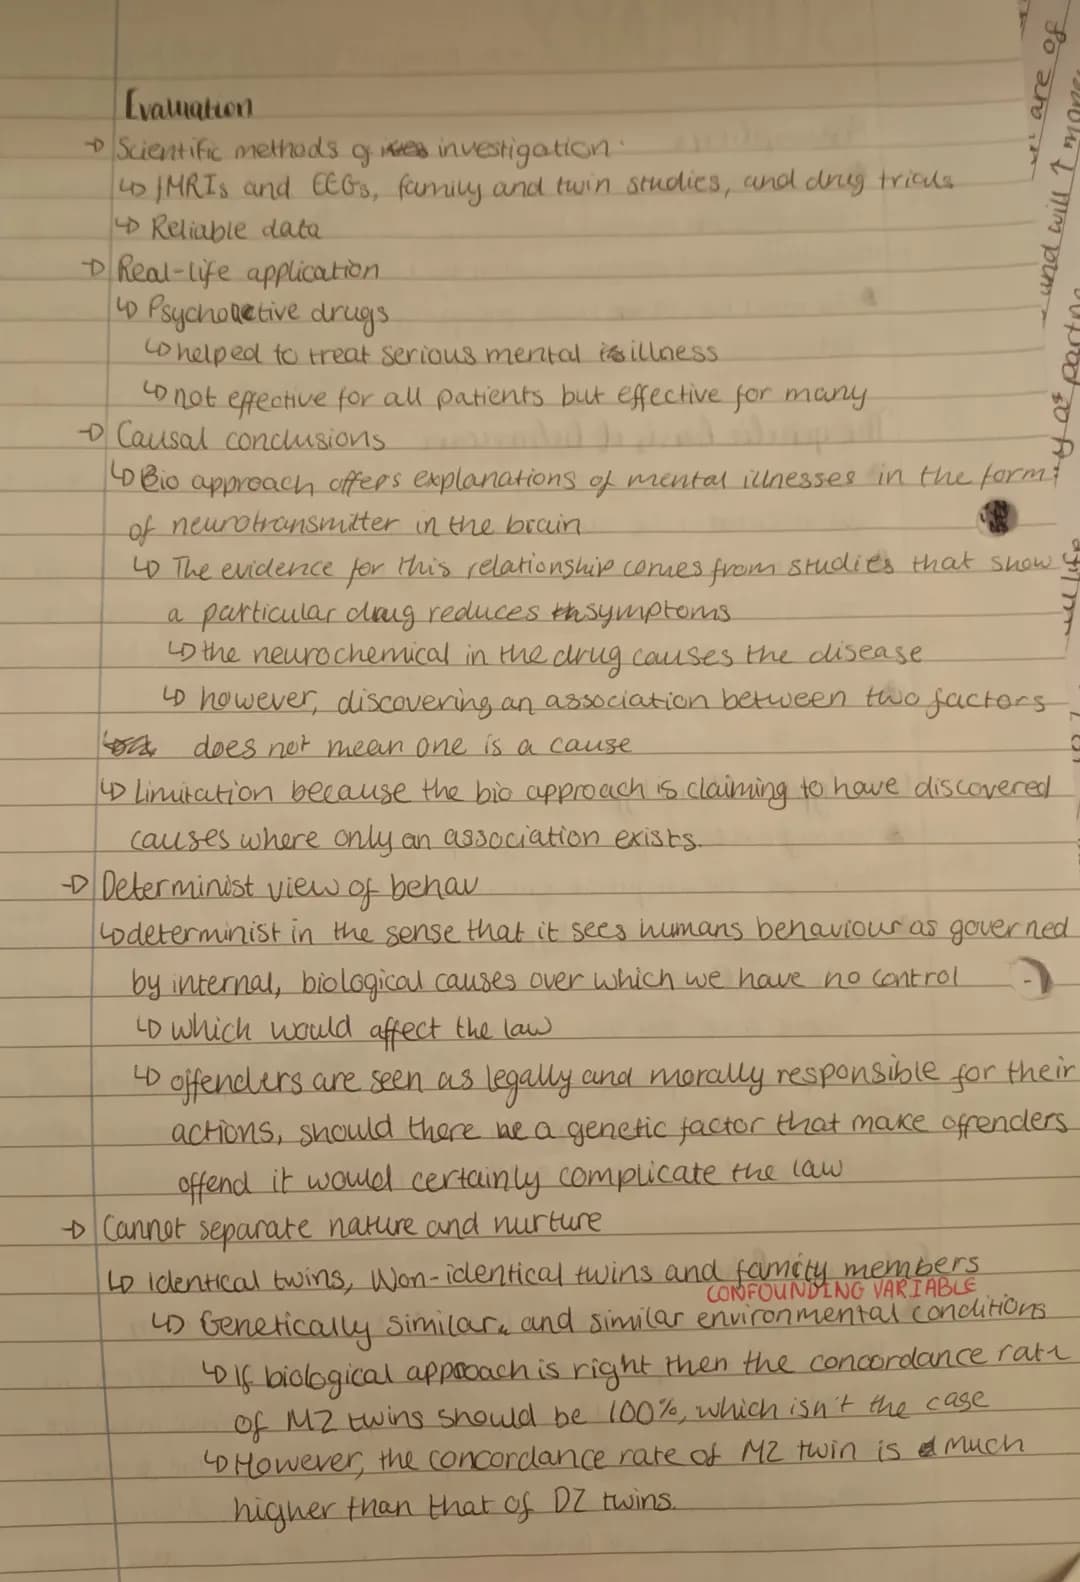 Evaluation
→ Scientific methods of investigation.
↳ fMRIs and EEGs, family and twin studies, and drug trials
↳ Reliable data
→ Real-life application
↳ Psychoactive drugs
↳ helped to treat serious mental illness
↳ not effective for all patients but effective for many
→ Causal conclusions
↳ Bio approach offers explanations of mental illnesses in the form
of neurotransmitter in the brain
↳ The evidence for this relationship comes from studies that show
a particular drug reduces symptoms
↳ the neurochemical in the drug causes the disease
↳ however, discovering an association between two factors
does not mean one is a cause
↳ Limitation because the bio approach is claiming to have discovered
causes where only an association exists.
→ Determinist view of behav
↳ determinist in the sense that it sees humans behaviour as governed
by internal, biological causes over which we have no control
↳ which would affect the law
↳ offenders are seen as legally and morally responsible for their
actions, should there be a genetic factor that make offenders
offend it would certainly complicate the law
→ Cannot separate nature and nurture
↳ Identical twins, Non-identical twins and family members
CONFOUNDING VARIABLE
↳ Genetically similar, and similar environmental conditions
↳ If biological approach is right then the concordance rate
of MZ twins should be 100%, which isn't the case
↳ However, the concordance rate of MZ twin is much
higher than that of DZ twins.
are of
and will ↑ money
y as partne
life